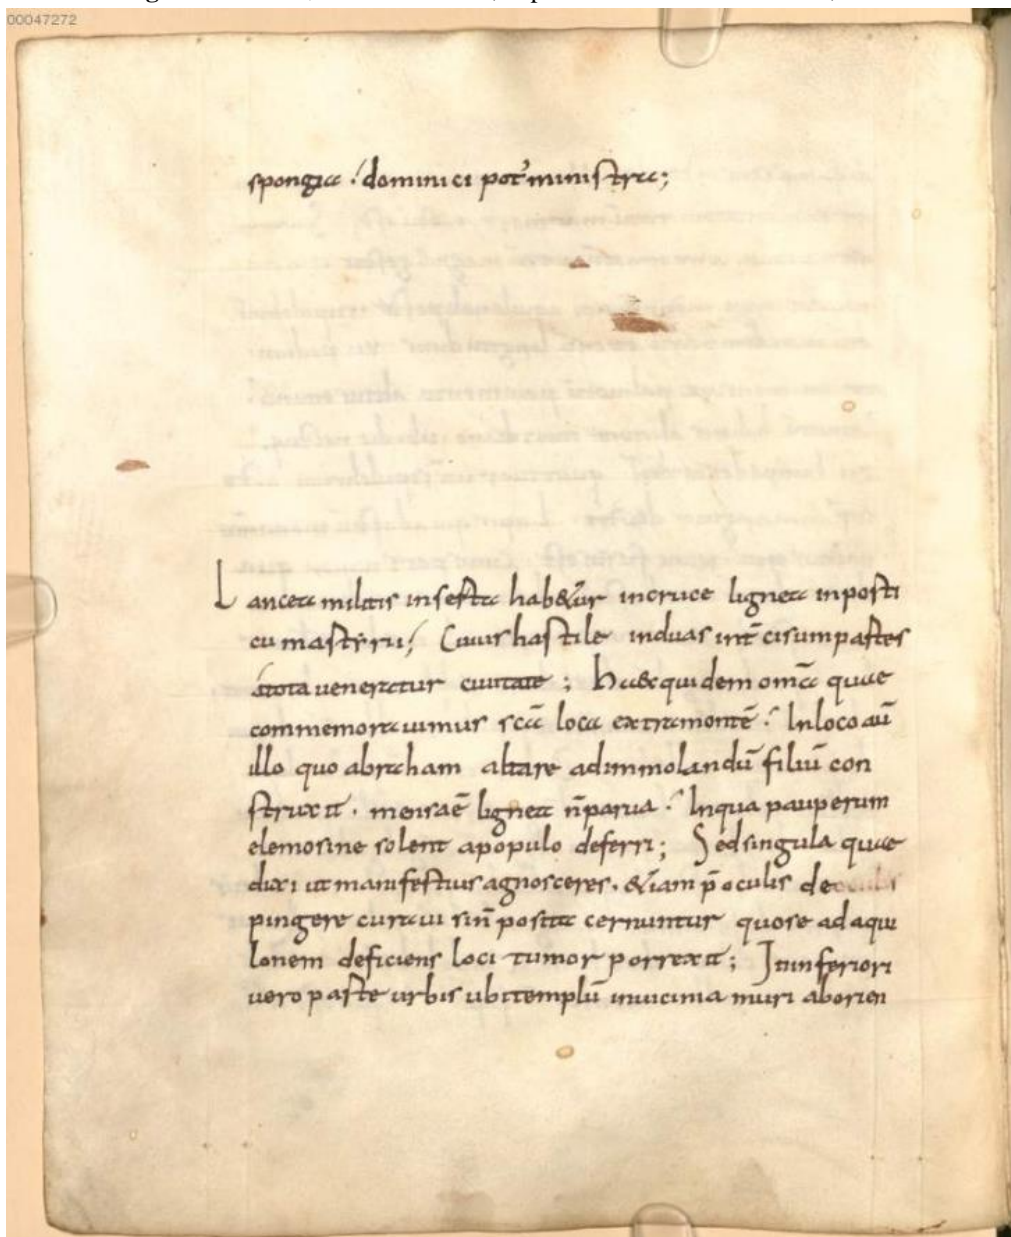 00047272
spongia . dominici pot' ministra;
Lancea militis inserta hab&ur incruce lignea inporti
cu martyrii . Cuius hastile induas int̄ cisum partes
atota ueneratur ciuitate ; haec quidem om̄a quae
commemorauimus sc̄a loca extramontē . Inloco aū
illo quo abraham altare adimmolandū filiū con
struxit . mensaē lignea n̄parua . Inqua pauperum
elemosine solent apopulo deferri ; Sedsingula quae
dixi ut manifestius agnosceres . &iam p̄ oculis de
pingere curaui sin̄ posita cernuntur quose ad aqui
lonem deficiens loci tumor porrexit ; Ininferiori
uero parte urbis ubitemplū inuicinia muri aborien